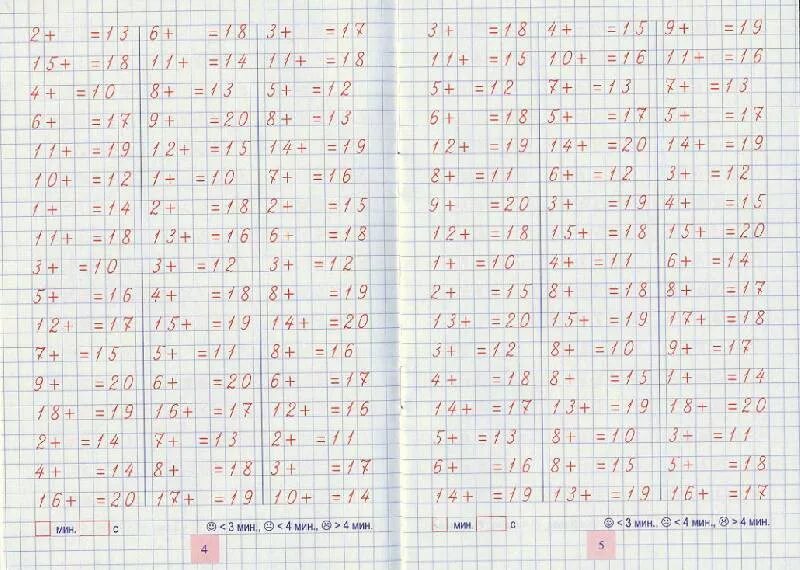 2+ =13 6+ =18 3+ =17
15+ =18 11+ =14 11+ =18
4+ =10 8+ =13 5+ =12
6+ =17 9+ =20 8+ =13
11+ =19 12+ =15 14+ =19
10+ =12 1+ =10 7+ =16
1+ =14 2+ =18 2+ =15
11+ =18 13+ =16 6+ =18
3+ =10 3+ =12 3+ =12
5+ =16 4+ =18 8+ =19
12+ =17 15+ =19 14+ =20
7+ =15 5+ =11 8+ =16
9+ =20 6+ =20 6+ =17
18+ =19 16+ =17 12+ =16
2+ =14 7+ =13 2+ =11
4+ =14 8+ =18 3+ =17
16+ =20 17+ =19 10+ =14
мин. с ☺ < 3 мин., 😐 < 4 мин., ☹ > 4 мин.
4
3+ =18 4+ =15 9+ =19
11+ =15 10+ =16 11+ =16
5+ =12 7+ =13 7+ =13
6+ =18 5+ =17 5+ =17
12+ =19 14+ =20 14+ =19
8+ =11 6+ =12 3+ =12
9+ =20 3+ =19 4+ =15
12+ =18 15+ =18 15+ =20
1+ =10 4+ =11 6+ =14
2+ =15 8+ =18 8+ =17
13+ =20 15+ =19 17+ =18
3+ =12 8+ =10 9+ =17
4+ =18 8+ =15 1+ =14
14+ =17 13+ =19 18+ =20
5+ =13 8+ =10 3+ =11
6+ =16 8+ =15 5+ =18
14+ =19 13+ =19 16+ =17
мин. с ☺ < 3 мин., 😐 < 4 мин., ☹ > 4 мин.
5